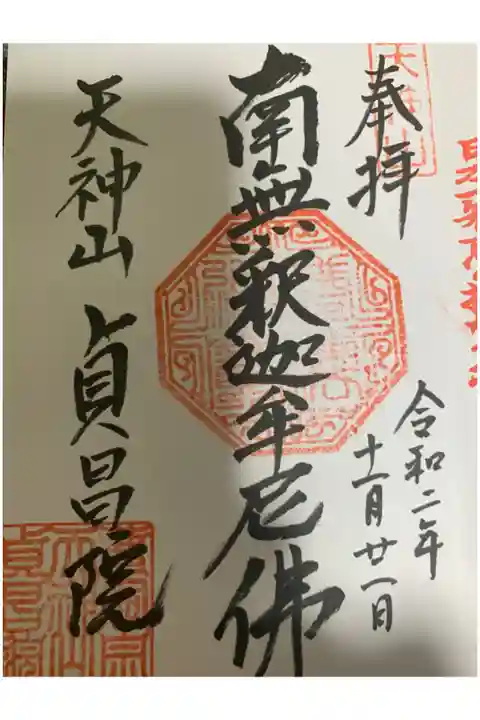 奉拝
令和二年
十一月廿一日
南無釈迦牟尼佛
天神山 貞昌院